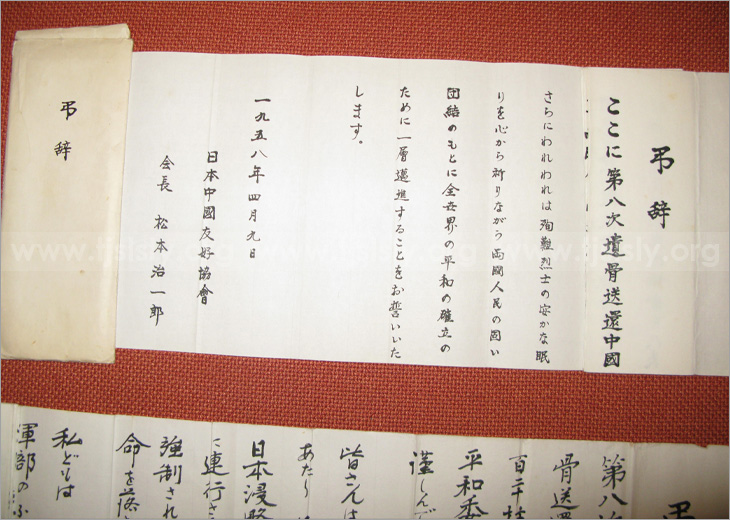 弔辞
ここに第八次遺骨送還中國
さらにわれわれは殉難烈士の安かな眠
りを心から祈りながら両國人民の固い
団結のもとに全世界の平和の確立の
ために一層邁進することをお誓いいた
します。
一九五八年四月九日
日本中國友好協會
会長 松本治一郎
弔辞
弔
第八
骨送還
百二十
平和委
謹しんで
皆さんは
あたり
日本侵略
に連行さ
強制され
命を落
私どもは
軍部のふ